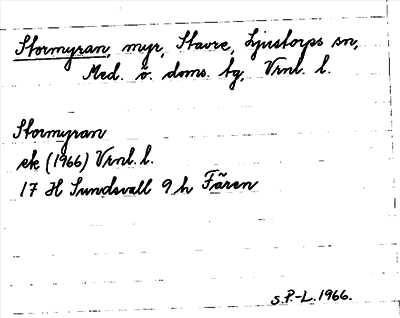 Stormyran, myr, Stavre, Ljustorps sn,
Med. ö. doms. tg, Vrnl. l.
Stormyran
ek (1966) Vrnl. l.
17 H Sundsvall 9 h Fären
S.P.-L. 1966.